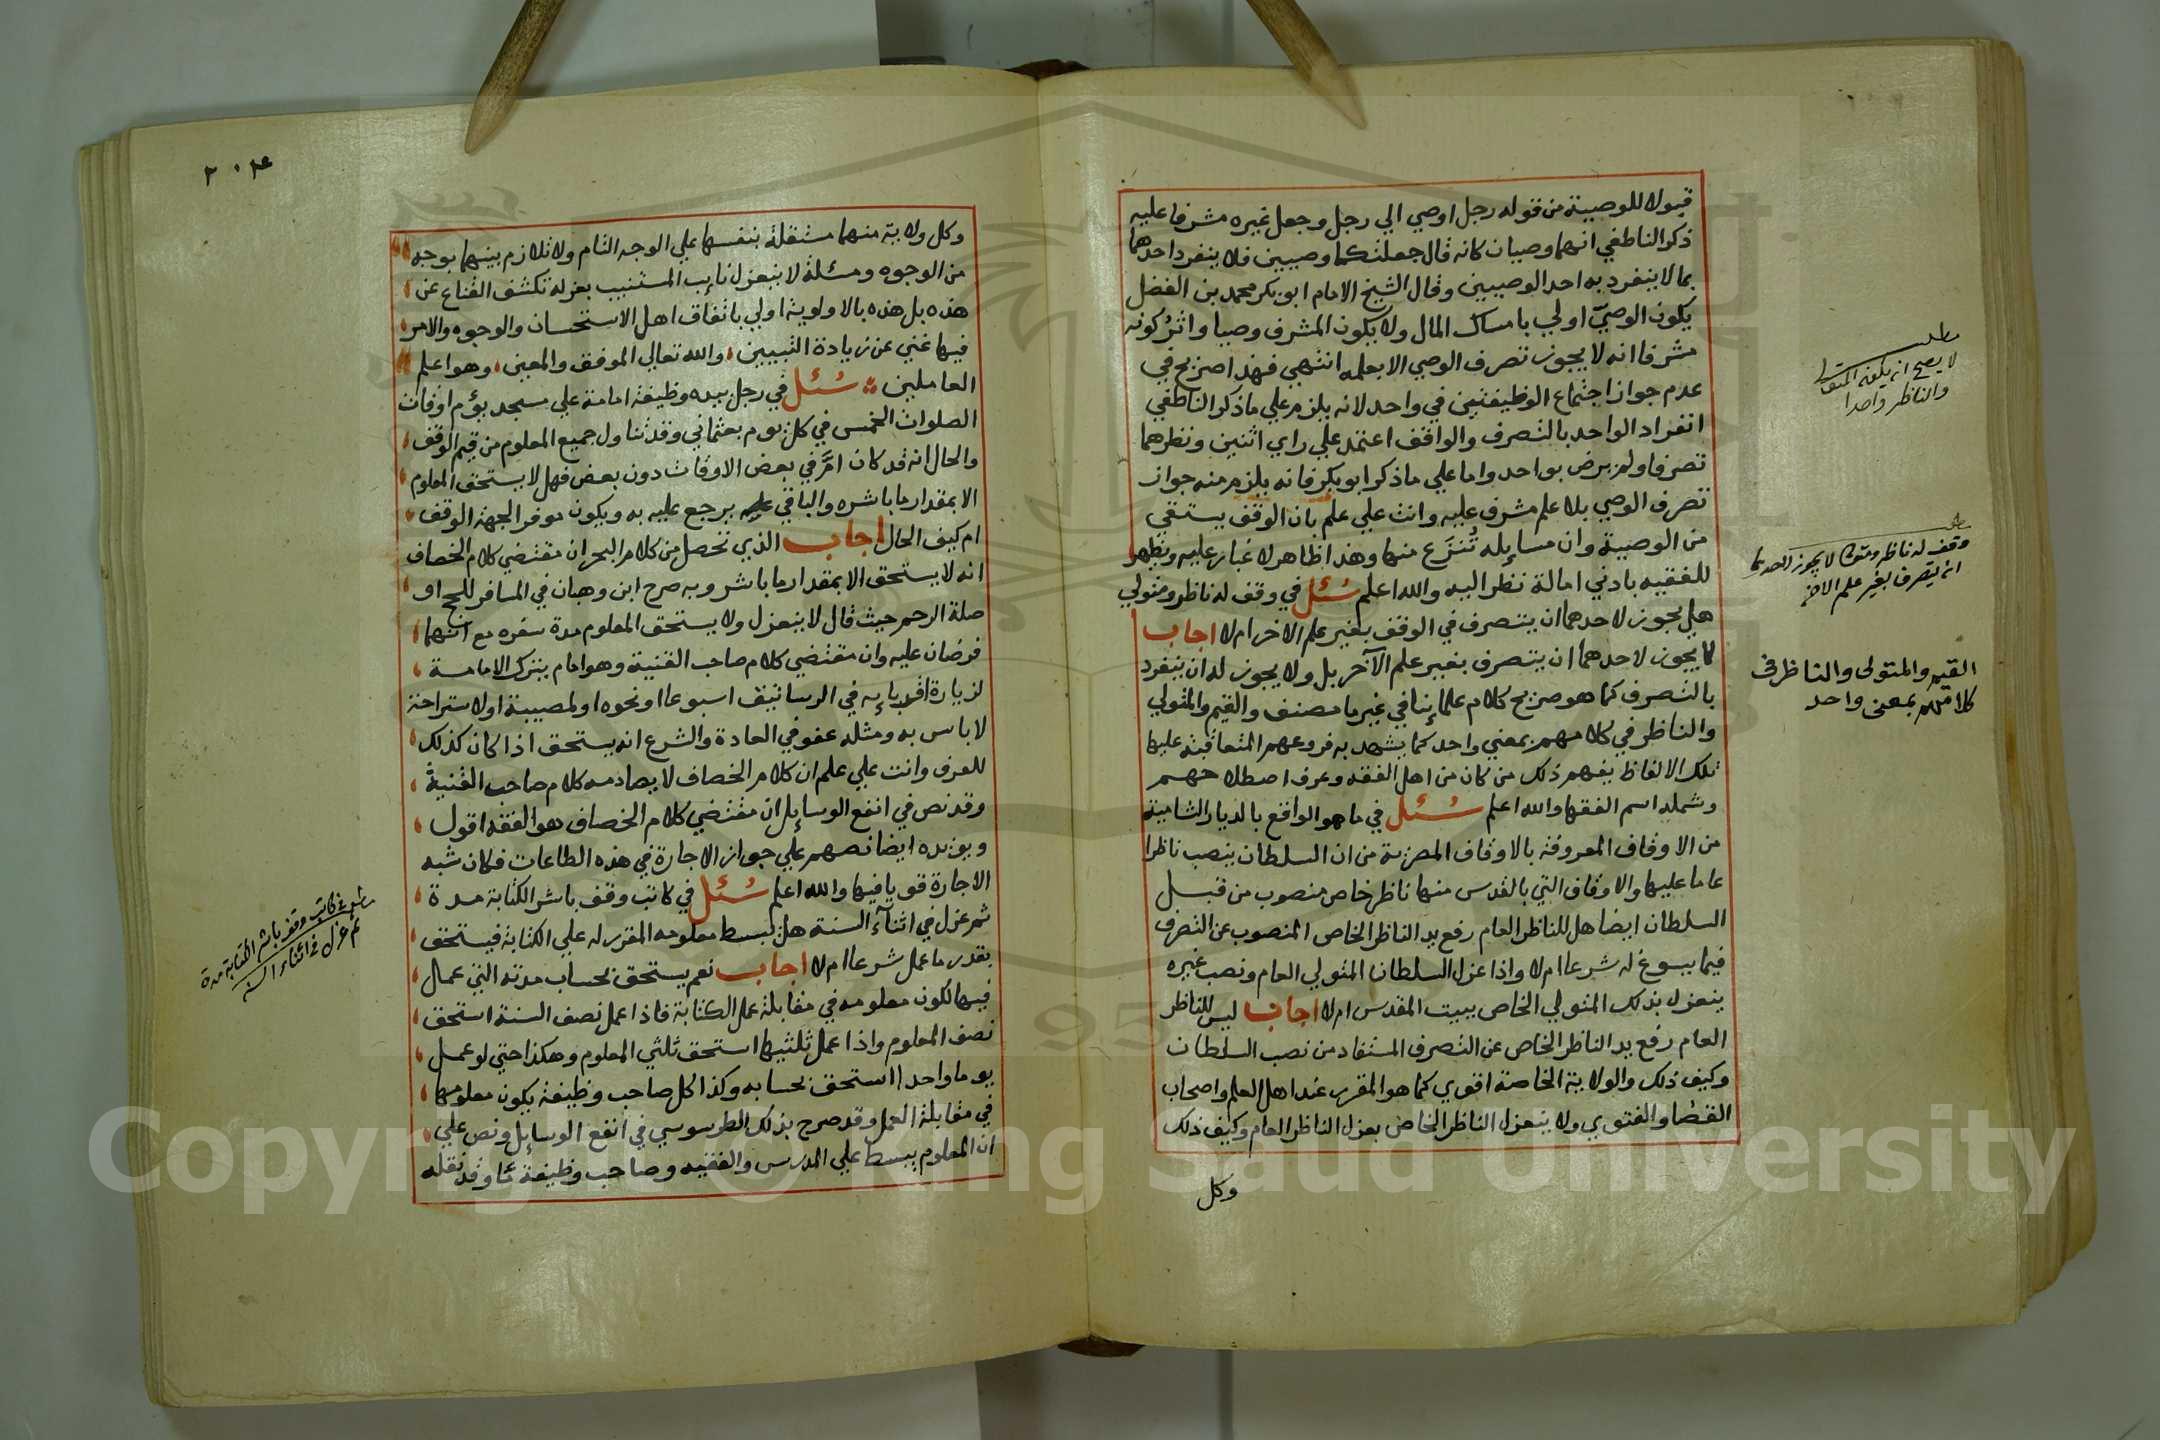 قبولا للوصية من قوله رجل اوصي الي رجل وجعل غيره مشرفا عليه
ذكر الناطفي انهما وصيان كانه قال جعلتكما وصيين فلا ينفرد احدهما
بما لا ينفرد به احد الوصيين وقال الشيخ الامام ابو بكر محمد بن الفضل
يكون الوصيّ اولي بامساك المال ولا يكون المشرف وصيا واثر كونه
مشرفا انه لا يجوز تصرف الوصي الا بعلمه انتهي فهذا صريح في
عدم جواز اجتماع الوظيفتين في واحد لانه يلزم علي ما ذكر الناطفي
انفراد الواحد بالتصرف والواقف اعتمد علي راي اثنين ونظرهما
تصرفا ولم يرض بواحد واما علي ما ذكر ابو بكر فانه يلزم منه جواز
تصرف الوصي بلا علم مشرف عليه وانت علي علم بان الوقف يستقي
من الوصية وان مسايله تُنزَع منها وهذا ظاهر لا غبار عليه ويظهر
للفقيه بادني امالة نظر اليه والله اعلم سُئل في وقف له ناظر ومتولي
هل يجوز لاحدهما ان يتصرف في الوقف بغير علم الاخر ام لا اجاب
لا يجوز لاحدهما ان يتصرف بغير علم الآخر بل ولا يجوز له ان ينفرد
بالتصرف كما هو صريح كلام علماينا في غير ما مصنف والقيم والمتولي
والناظر في كلامهم بمعني واحد كما يشهد به فروعهم المتعاقبة عليها
تلك الالفاظ يفهم ذلك من كان من اهل الفقه وعرف اصطلاحهم
وشمله اسم الفقها والله اعلم سُئل في ما هو الواقع بالديار الشامية
من الاوقاف المعروفة بالاوقاف المصرية من ان السلطان ينصب ناظرا
عاما عليها والاوقاف التي بالقدس منها ناظر خاص منصوب من قبل
السلطان ايضا هل للناظر العام رفع يد الناظر الخاص المنصوب عن التصرف
فيما يسوغ له شرعا ام لا واذا عزل السلطان المتولي العام ونصب غيره
ينعزل بذلك المتولي الخاص ببيت المقدس ام لا اجاب ليس للناظر
العام رفع يد الناظر الخاص عن التصرف المستفاد من نصب السلطان
وكيف ذلك والولاية الخاصة اقوي كما هو المقرر عند اهل العلم واصحاب
القضا والفتوي ولا ينعزل الناظر الخاص بعزل الناظر العام وكيف ذلك
وكل
مطلب
لا يصح ان يكون المتولي
والناظر واحدا
مطلب
وقف له ناظر ومتول لا يجوز لاحدهما
ان يتصرف بغير علم الاخر
القيم والمتولى والناظر في
كلامهم بمعنى واحد
٢٠٤
وكل ولاية منهما مستقلة بنفسها علي الوجه التام ولا تلازم بينهما بوجه
من الوجوه ومسئلة لا ينعزل نايب المستنيب بعزله تكشف القناع عن
هذه بل هذه بالاولوية اولي باتفاق اهل الاستحسان والوجوه والامر
فيها غني عن زيادة التبيين والله تعالي الموفق والمعين وهو اعلم
العاملين سُئل في رجل بيده وظيفة امامة علي مسجد يؤم اوقات
الصلوات الخمس في كل يوم بعثماني وقد تناول جميع المعلوم من قيم الوقف
والحال انه قد كان امّ في بعض الاوقات دون بعض فهل لا يستحق المعلوم
الا بمقدار ما باشره والباقي يرجع عليه به ويكون موفرا لجهة الوقف
ام كيف الحال اجاب الذي تحصل من كلام البحر ان مقتضي كلام الخصاف
انه لا يستحق الا بمقدار ما باشر وبه صرح ابن وهبان في المسافر للحج او
صلة الرحم حيث قال لا ينعزل ولا يستحق المعلوم مدة سفره مع انهما
فرضان عليه وان مقتضي كلام صاحب القنية وهو امام يترك الامامة
لزيارة اقربايه في الرساتيق اسبوعا او نحوه او لمصيبة او لاستراحة
لا باس به ومثله عفو في العادة والشرع انه يستحق اذا كان كذلك
للعرف وانت علي علم ان كلام الخصاف لا يصادمه كلام صاحب القنية
وقد نص في انفع الوسايل ان مقتضي كلام الخصاف هو الفقه اقول
ويؤيده ايضا نصهم علي جواز الاجارة في هذه الطاعات فكان شبه
الاجارة قويا فيها والله اعلم سُئل في كاتب وقف باشر الكتابة مدة
ثم عزل في اثناء السنة هل يبسط معلومه المقرر له علي الكتابة فيستحق
بقدر ما عمل شرعا ام لا اجاب نعم يستحق بحساب مدته التي عمل
فيها لكون معلومه في مقابلة عمل الكتابة فاذا عمل نصف السنة استحق
نصف المعلوم واذا عمل ثلثيها استحق ثلثي المعلوم وهكذا حتي لو عمل
يوما واحدا استحق بحسابه وكذا كل صاحب وظيفة يكون معلومها
في مقابلة العمل وقد صرح بذلك الطرسوسي في انفع الوسايل ونص علي
ان المعلوم يبسط علي المدرس والفقيه وصاحب وظيفة ما وقد نقله
كاتب وقف باشر الكتابة مدة
ثم عزل في اثناء السنة
Copyright © King Saud University